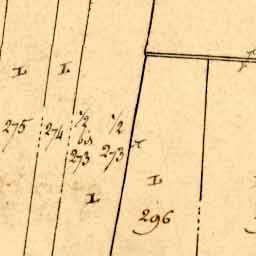 L L
275 274
1/2 bis 273
1/2 273
L L
296